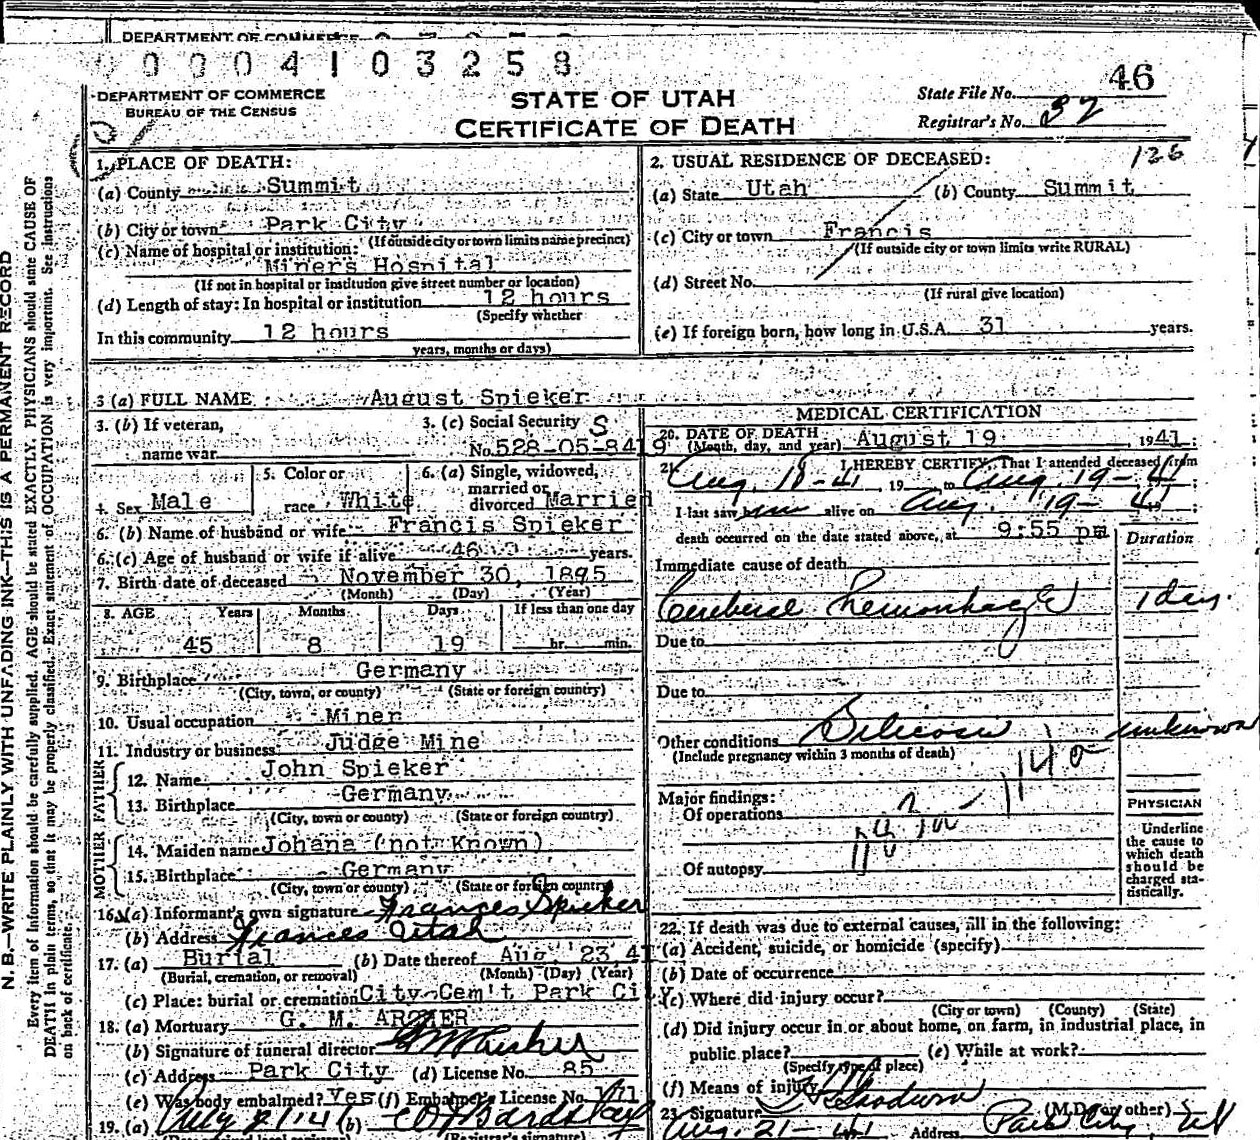 DEPARTMENT OF COMMERCE
0 0 0 0 4 1 0 3 2 5 8
46
DEPARTMENT OF COMMERCE
BUREAU OF THE CENSUS
STATE OF UTAH
CERTIFICATE OF DEATH
State File No.
Registrar's No. 32
N. B.—WRITE PLAINLY WITH UNFADING INK—THIS IS A PERMANENT RECORD
Every item of information should be carefully supplied. AGE should be stated EXACTLY. PHYSICIANS should state CAUSE OF
DEATH in plain terms, so that it may be properly classified. Exact statement of OCCUPATION is very important. See instructions
on back of certificate.
1. PLACE OF DEATH:
(a) County Summit
(b) City or town Park City
(If outside city or town limits name precinct)
(c) Name of hospital or institution:
Miners Hospital
(If not in hospital or institution give street number or location)
(d) Length of stay: In hospital or institution 12 hours
(Specify whether
In this community 12 hours
years, months or days)
2. USUAL RESIDENCE OF DECEASED: 126
(a) State Utah (b) County Summit
(c) City or town Francis
(If outside city or town limits write RURAL)
(d) Street No.
(If rural give location)
(e) If foreign born, how long in U.S.A. 31 years.
3 (a) FULL NAME August Spieker
3. (b) If veteran,
name war
3. (c) Social Security S
No. 528-05-8419
4. Sex Male
5. Color or
race White
6. (a) Single, widowed,
married or
divorced Married
6. (b) Name of husband or wife Francis Spieker
6. (c) Age of husband or wife if alive 46 years.
7. Birth date of deceased November 30, 1895
(Month) (Day) (Year)
8. AGE Years Months Days If less than one day
45 8 19 hr. min.
9. Birthplace Germany
(City, town, or county) (State or foreign country)
10. Usual occupation Miner
11. Industry or business Judge Mine
FATHER
12. Name John Spieker
13. Birthplace Germany
(City, town or county) (State or foreign country)
MOTHER
14. Maiden name Johana (not Known)
15. Birthplace Germany
(City, town or county) (State or foreign country)
16. (a) Informant's own signature Frances Spieker
(b) Address Frances Utah
17. (a) Burial (b) Date thereof Aug. 23, 41
(Burial, cremation, or removal) (Month) (Day) (Year)
(c) Place: burial or cremation City Cem't Park City
18. (a) Mortuary G. M. ARCHER
(b) Signature of funeral director G M Archer
(c) Address Park City (d) License No. 85
(e) Was body embalmed? Yes (f) Embalmer's License No. 171
19. (a) Aug 21 41 (b)
(Registrar's signature)
MEDICAL CERTIFICATION
20. DATE OF DEATH
(Month, day, and year) August 19 , 1941 ;
21. I HEREBY CERTIFY, That I attended deceased from
Aug. 18-41, 19 to Aug. 19-41 ;
I last saw him alive on Aug. 19-41 ;
death occurred on the date stated above, at 9:55 pm
Duration
Immediate cause of death
Cerebral hemorrhage 1 day.
Due to
Due to
Other conditions Silicosis unknown
(Include pregnancy within 3 months of death)
Major findings:
Of operations
Of autopsy
PHYSICIAN
Underline
the cause to
which death
should be
charged sta-
tistically.
22. If death was due to external causes, fill in the following:
(a) Accident, suicide, or homicide (specify)
(b) Date of occurrence
(c) Where did injury occur?
(City or town) (County) (State)
(d) Did injury occur in or about home, on farm, in industrial place, in
public place? (e) While at work?
(Specify type of place)
(f) Means of injury
23. Signature (M.D. or other)
Aug. 21-41 Address Park City, Ut